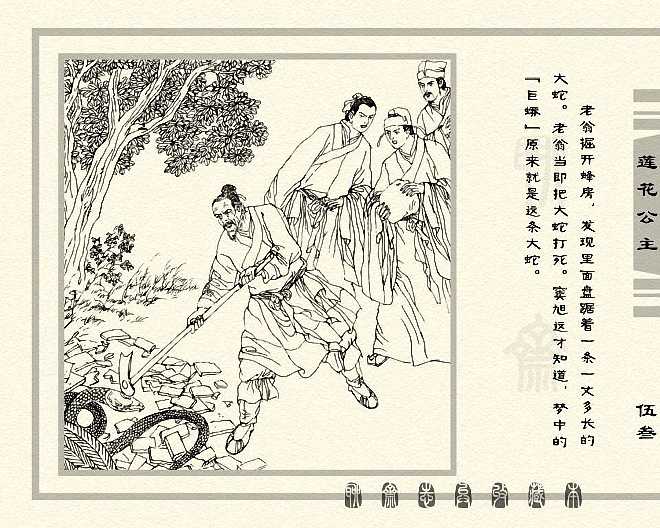 莲花公主
伍叁
老翁掘开蜂房，发现里面盘踞着一条一丈多长的
大蛇。老翁当即把大蛇打死。窦旭这才知道，梦中的
「巨蟒」原来就是这条大蛇。
聊齋志異收藏本